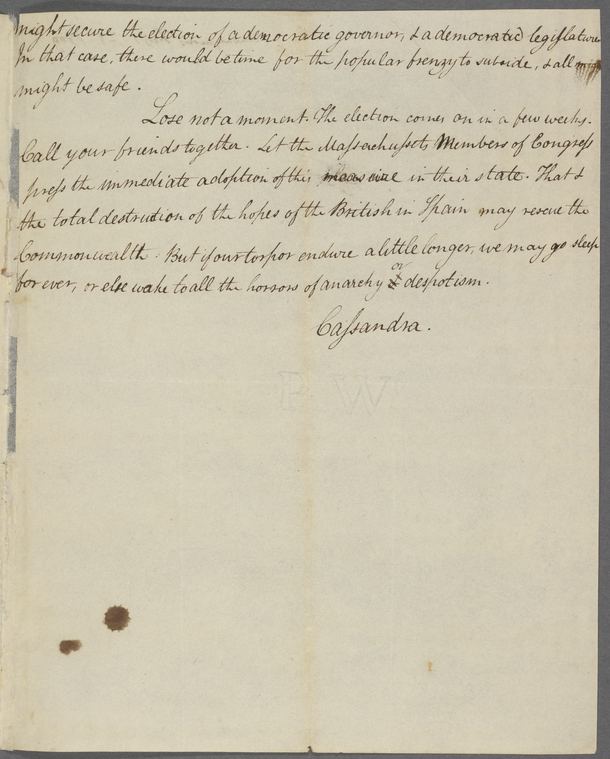 might secure the election of a democratic governor, & a democratic legislature
In that case, there would be time for the popular frenzy to subside, & all
might be safe.
Lose not a moment. The election comes on in a few weeks.
Call your friends together. Let the Massachussets Members of Congress
press the immediate adoption of this measure in their state. That &
the total destruction of the hopes of the British in Spain may rescue the
Commonwealth. But if our torpor endure a little longer, we may go sleep
for ever, or else wake to all the horrors of anarchy or despotism.
Cassandra.
PW